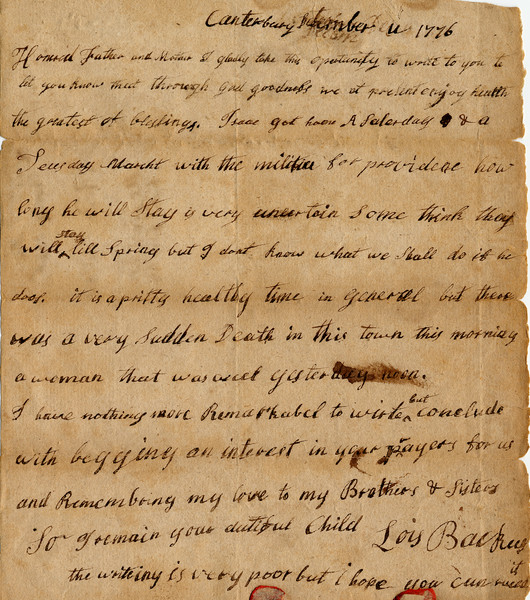 Canterbury 11 1776
Honored Father and Mother I gladly take this opertunity to write to you to
let you know that through God goodness we at present enjoy health
the greatest of blesings. Isaac got home A Saterday & a
Teusday Marcht with the militia for providence how
long he will Stay is very uncertain some think they
will stay till Spring but I dont know what we Shall do if he
does. it is a pritty healthy time in general but there
was a very Sudden Death in this town this morning
a woman that was well yesterday noon.
I have nothing more Remarkabel to write but conclude
with begging an interest in your prayers for us
and Remembring my love to my Brothers & Sisters
So I remain your dutiful Child Lois Backus
the writeing is very poor but i hope you can read it